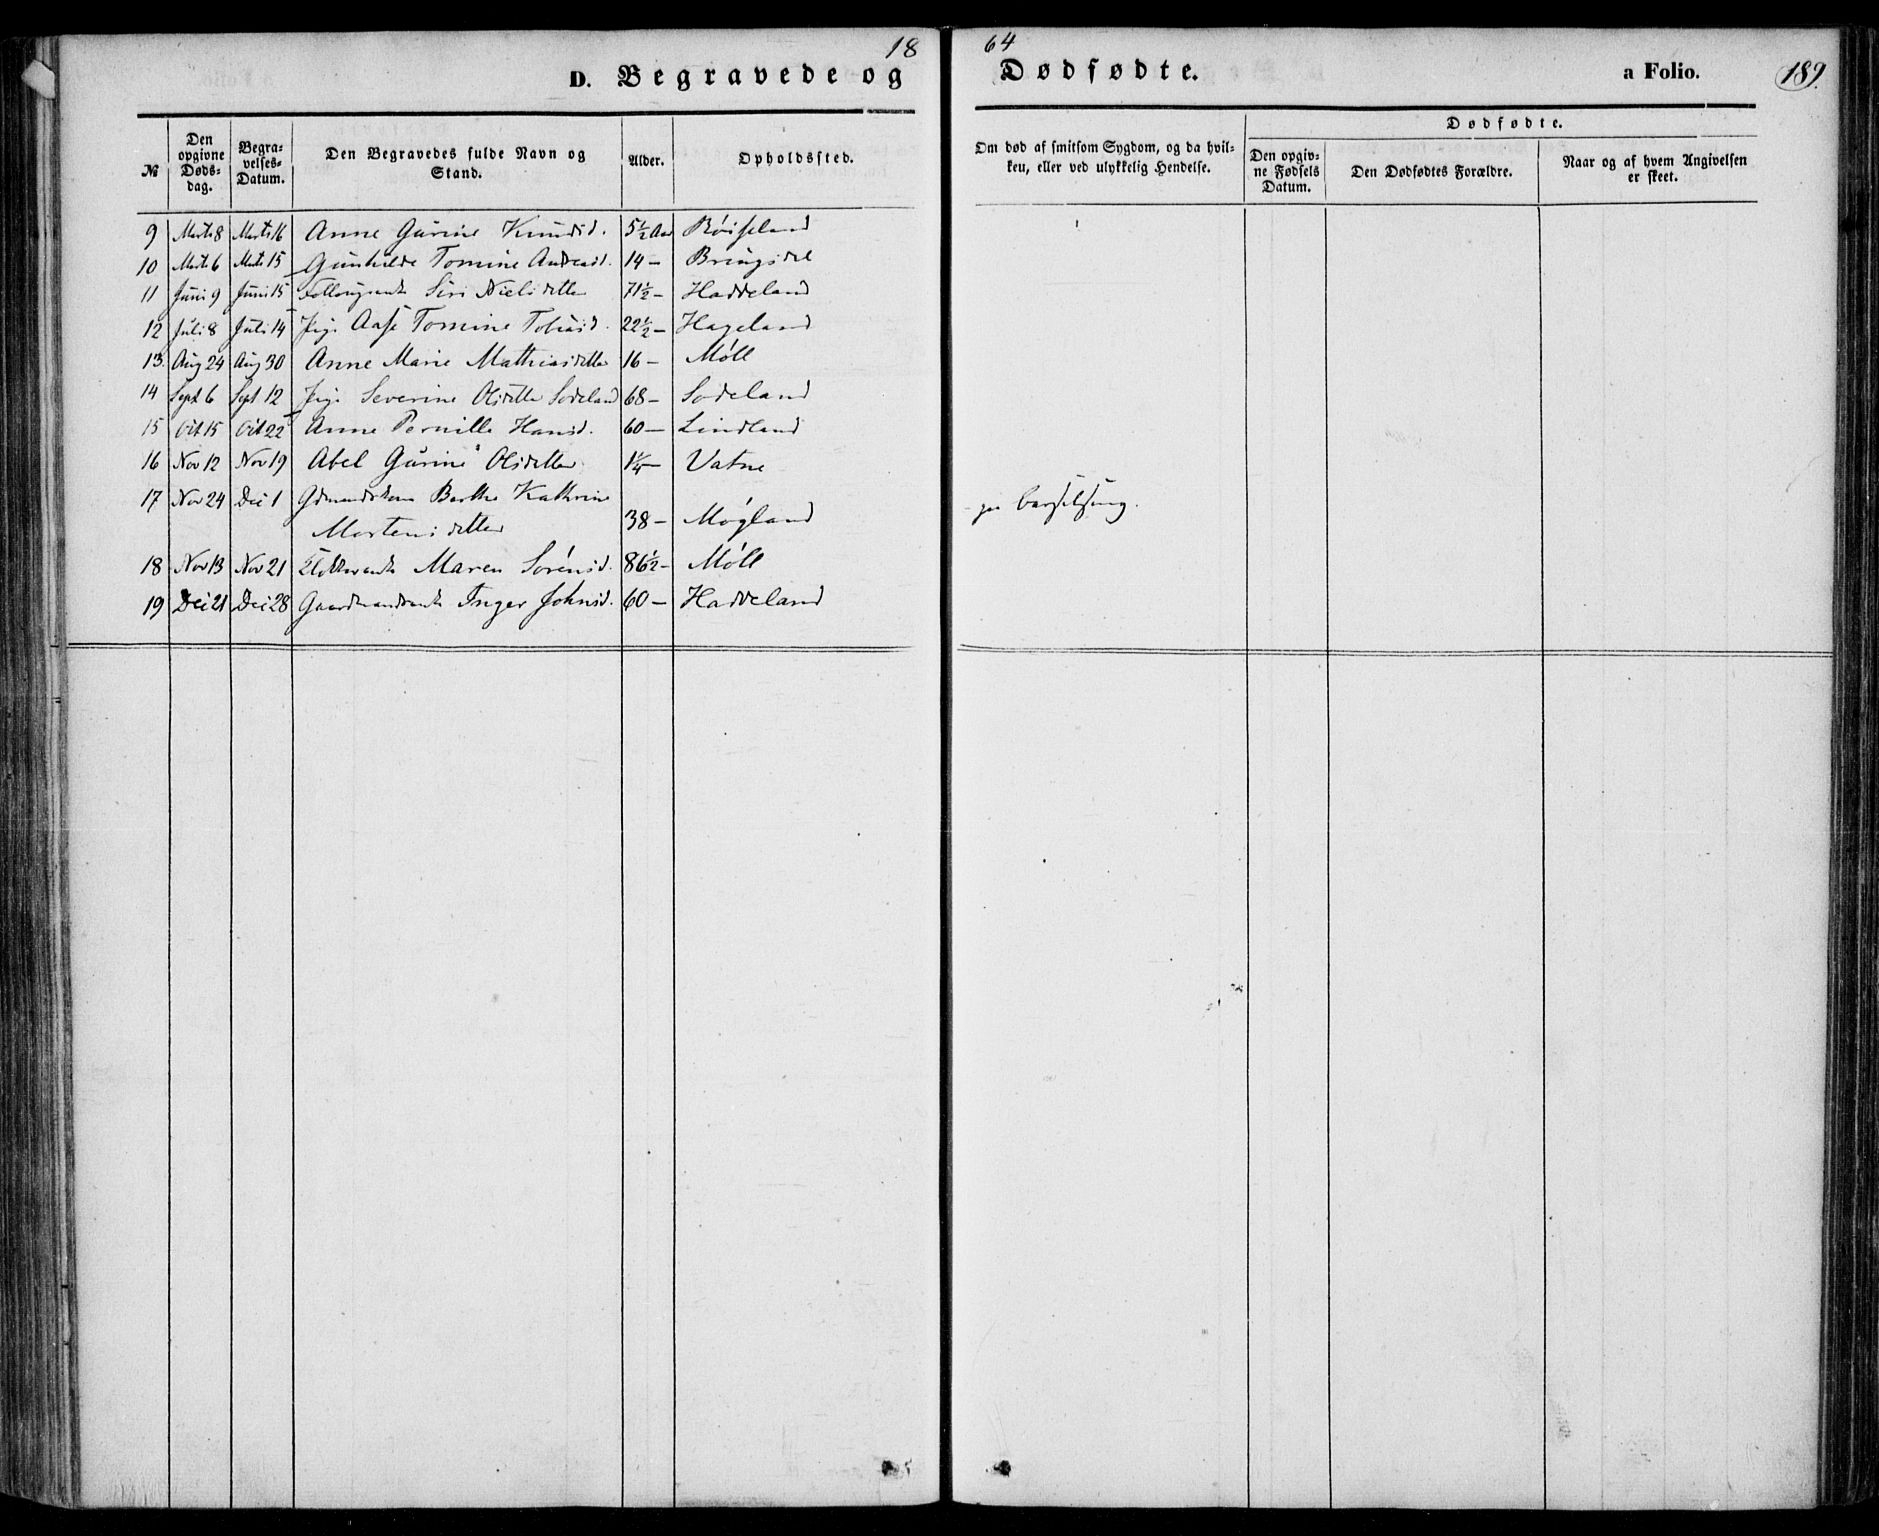 18 64
D. Begravede og Dødfødte. a Folio. 189.
№ | Den opgivne Døds-dag. | Begra-velses-Datum. | Den Begravedes fulde Navn og Stand. | Alder. | Opholdssted. | Om død af smitsom Sygdom, og da hvil-ken, eller ved ulykkelig Hendelse. | Dødfødte. | Den opgiv-ne Fødsels Datum. | Den Dødfødtes Forældre. | Naar og af hvem Angivelsen er skeet.
9 Marts 8 Marts 16 Anne Gurine Knudsd. 5½ Aar Røiseland
10 Marts 6 Marts 15 Gunhilde Tomine Andreasd. 14 — Bringsdal
11 Juni 9 Juni 15 Siri Nielsdatter 71½ — Haddeland
12 Juli 8 Juli 14 Pige Aase Tomine Tobiasd. 22½ — Hageland
13. Aug 24 Aug 30 Anne Marie Mathiasdatter 16 — Møll
14 Sept 6 Sept 12 Pige Severine Olsdatter Sodeland 68 — Sodeland
15 Oct 15 Oct 22 Anne Pernille Hansd. 60 — Lindland
16 Nov 12 Nov 19 Abel Gurine Olsdatter 1¼ — Vatne
17 Nov 24 Dec 1 Gdmandskone Berthe Kathrine
Mortensdatter 38 — Møgland barselseng.
18 Nov 13 Nov 21 Maren Sørensd. 86½ — Møll
19 Dec 21 Dec 28 Gaardmandsenke Inger Johnsd. 60 — Haddeland